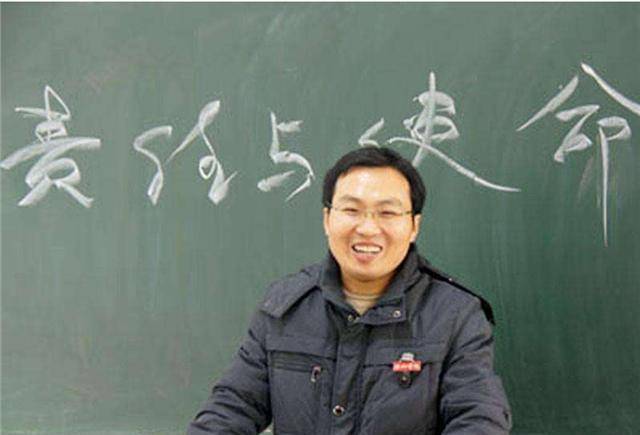 责任与使命